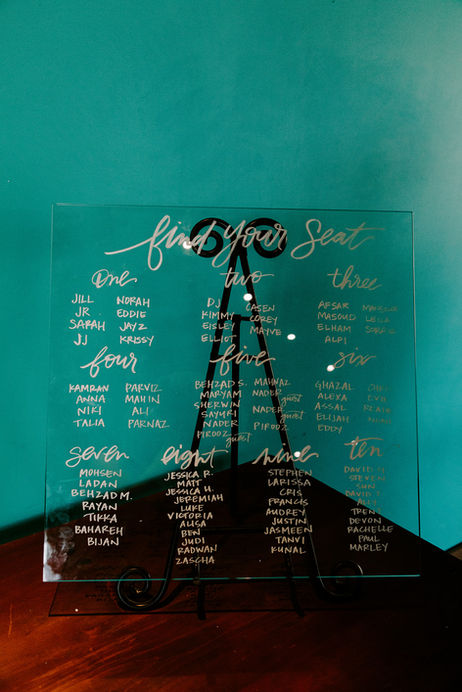 find your Seat
one
JILL NORAH
JR EDDIE
SARAH JAYZ
JJ KRISSY
two
DJ CASEN
KIMMY COREY
EISLEY MAYVE
ELLIOT
three
AFSAR
MASOUD LEILA
ELHAM
ALPI
four
KAMRAN PARVIZ
ANNA MAHIN
NIKI ALI
TALIA PARNAZ
five
BEHZAD S. MAHNAZ
MARYAM NADER
SHERWIN guest
SAYMRI NADER
NADER guest
PIROOZ PIROOZ
guest
six
GHAZAL
ALEXA
ASSAL
ELIJAH
EDDY
seven
MOHSEN
LADAN
BEHZAD M.
RAYAN
TIKKA
BAHAREH
BIJAN
eight
JESSICA R.
MATT
JESSICA H.
JEREMIAH
LUKE
VICTORIA
ALISA
BEN
JUDI
RADWAN
ZASCHA
nine
STEPHEN
LARISSA
CRIS
FRANCIS
AUDREY
JUSTIN
JASMEEN
TANVI
KUNAL
ten
STEVEN
DAVID
ALLY
TRENT
DEVON
RACHELLE
PAUL
MARLEY